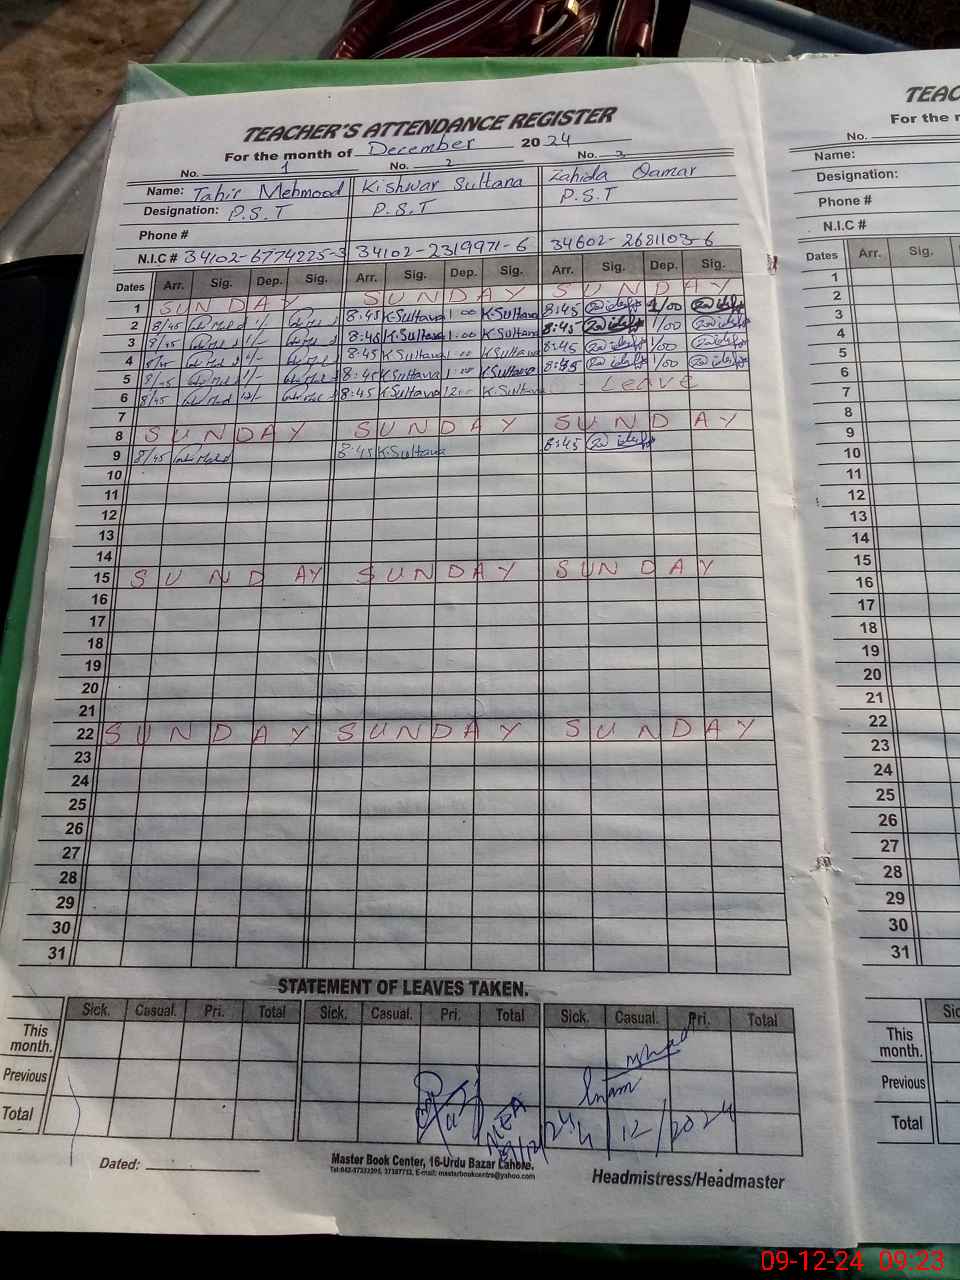 TEACHER'S ATTENDANCE REGISTER
For the month of December 2024
No. 1 No. 2 No. 3
Name: Tahir Mehmood Kishwar Sultana Zahida Qamar
Designation: P.S.T P.S.T P.S.T
Phone #
N.I.C # 34102-6774225-3 34102-2319971-6 34602-2681103-6
Dates Arr. Sig. Dep. Sig. Arr. Sig. Dep. Sig. Arr. Sig. Dep. Sig.
1 SUNDAY SUNDAY SUNDAY
2 8/45 1/- 8:45 K.Sultana 1:00 K.Sultana 8:45 1/00
3 8/45 1/- 8:45 K.Sultana 1:00 K.Sultana 8:45 1/00
4 8/45 1/- 8:45 K.Sultana 1:00 K.Sultana 8:45 1/00
5 8/45 1/- 8:45 K.Sultana 1:00 K.Sultana 8:45 1/00
6 8/45 12/- 8:45 K.Sultana 12:00 K.Sultana - Leave
7
8 SUNDAY SUNDAY SUNDAY
9 8/45 8:45 K.Sultana 8:45
10
11
12
13
14
15 SUNDAY SUNDAY SUNDAY
16
17
18
19
20
21
22 SUNDAY SUNDAY SUNDAY
23
24
25
26
27
28
29
30
31
STATEMENT OF LEAVES TAKEN.
Sick. Casual. Pri. Total Sick. Casual. Pri. Total Sick. Casual. Pri. Total
This month.
Previous
Total
MEA
9/12/24
12/2024
Dated:
Master Book Center, 16-Urdu Bazar Lahore.
Headmistress/Headmaster
TEAC
For the m
No.
Name:
Designation:
Phone #
N.I.C #
Dates Arr. Sig.
1
2
3
4
5
6
7
8
9
10
11
12
13
14
15
16
17
18
19
20
21
22
23
24
25
26
27
28
29
30
31
Sic
This month.
Previous
Total
09-12-24 09:23